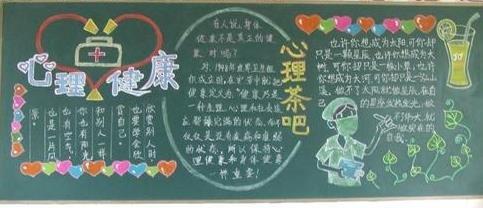 心理健康
欣赏别人时
也要学会欣
赏自己。
和别人一样
你也有阳光
也有空气
也是一片风
景。
有人说,身体
健康不是真正的健
康,对吗?
对,1948年世界卫生组
织成立时,在它的宪章中就把
健康定义为:“健康不是
一种生理、心理和社会适
应都臻完满的状态,而不
仅仅是没有疾病和虚弱
的状态,所以保持心
理健康和身体健康
一样重要!
心理茶吧
也许你想成为太阳,可你却
只是一颗星辰;也许你想成为大
树,可你却只是一棵小草;也许
你想成为大河,可你却只是一泓山
溪。做不了太阳,就做星辰,在自
己的星座发热发光;做
不了伟大,就
做实在的
自我。